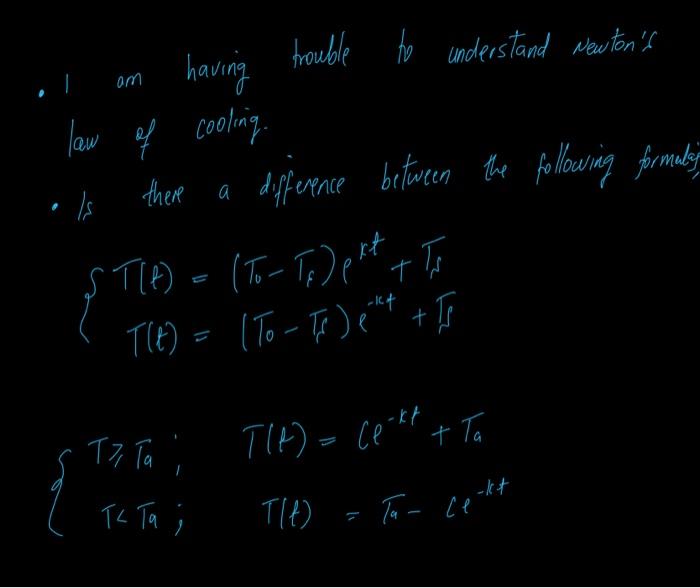 • I am having trouble to understand Newton's
law of cooling.
• Is there a difference between the following formulas
T(t) = (T₀ - Tₛ)e^{kt} + Tₛ
T(t) = (T₀ - Tₛ)e^{-kt} + Tₛ
T ≥ Tₐ ; T(t) = Ce^{-kt} + Tₐ
T < Tₐ ; T(t) = Tₐ - Ce^{-kt}